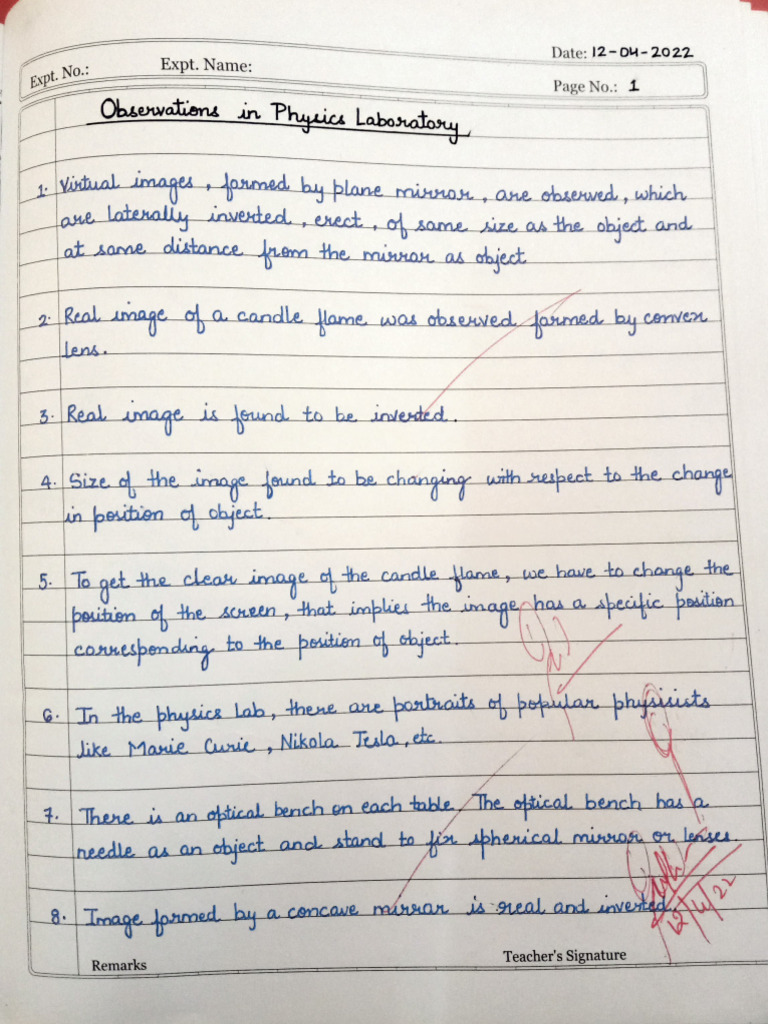 Date: 12-04-2022
Expt. No.: Expt. Name:
Page No.: 1
Observations in Physics Laboratory
1. Virtual images, formed by plane mirror, are observed, which
are laterally inverted, erect, of same size as the object and
at same distance from the mirror as object
2. Real image of a candle flame was observed formed by convex
lens.
3. Real image is found to be inverted.
4. Size of the image found to be changing with respect to the change
in position of object.
5. To get the clear image of the candle flame, we have to change the
position of the screen, that implies the image has a specific position
corresponding to the position of object.
6. In the physics Lab, there are portraits of popular physisists
like Marie Curie, Nikola Tesla, etc.
7. There is an optical bench on each table. The optical bench has a
needle as an object and stand to fix spherical mirror or lenses.
8. Image formed by a concave mirror is real and inverted.
12/4/22
Remarks Teacher's Signature